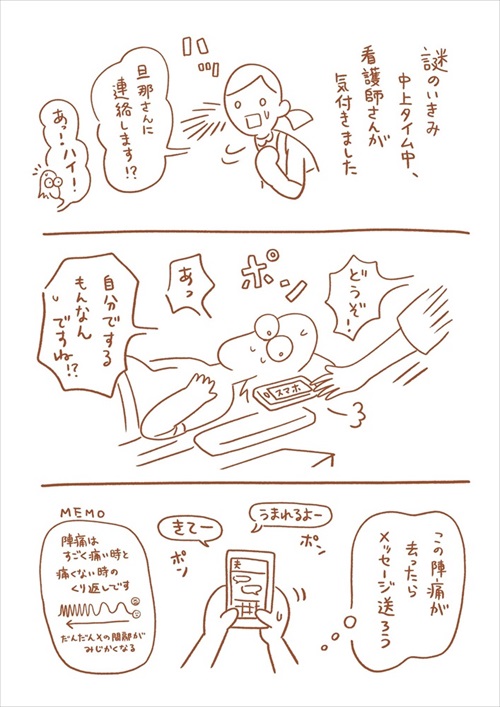 謎のいきみ
中上タイム中、
看護師さんが
気付きました
ハッ
旦那さんに
連絡します!?
あっ!ハイ!
どうぞ!
ポンッ
あっ
スマホ
自分でする
もんなん
ですね!?
この陣痛が
去ったら
メッセージ送ろう
うまれるよー
ポン
きてー
ポン
夫
MEMO
陣痛は
すごく痛い時と
痛くない時の
くり返しです
だんだんその間隔が
みじかくなる